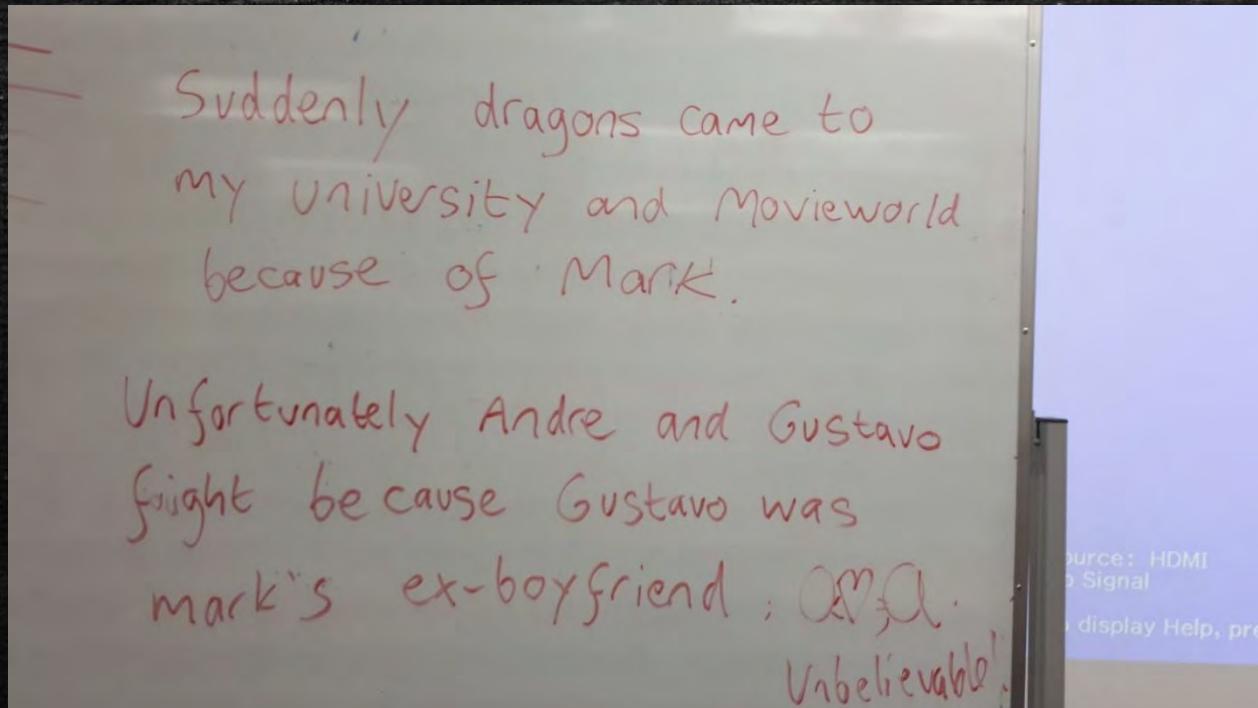 Suddenly dragons came to
my university and Movieworld
because of Mark.
Unfortunately Andre and Gustavo
fight because Gustavo was
mark's ex-boyfriend,
Unbelievable!
ource: HDMI
o Signal
o display Help, pre